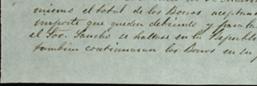 mismo el total de los Bonos aceptando
importe que queden debiendo y
el Sor. Sancho se hallase en la República
tambien continuaran los Bonos en su